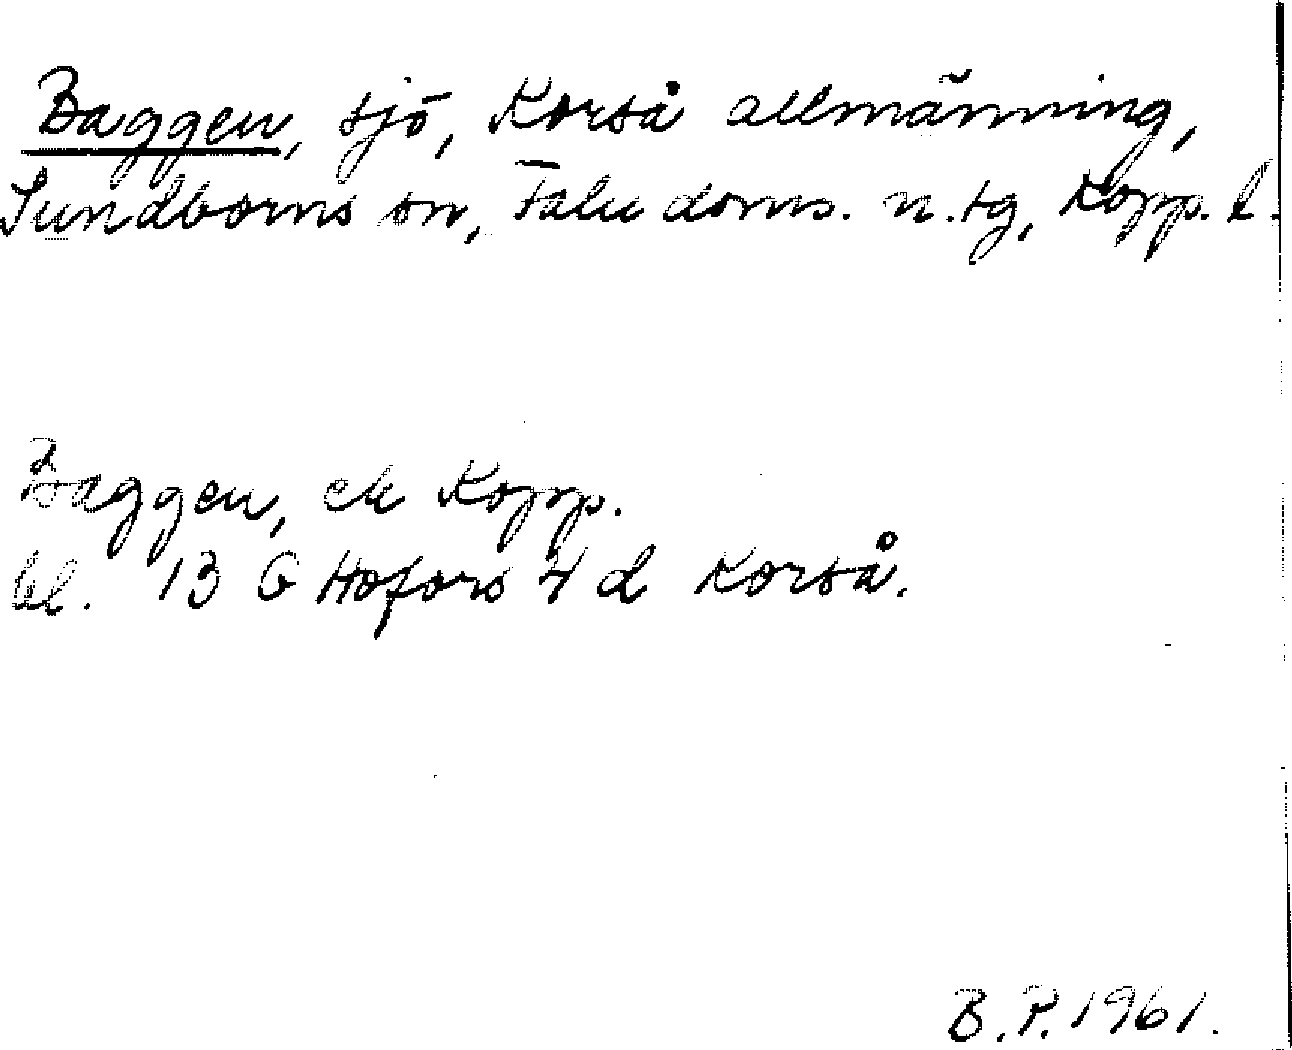 Baggen, sjö, Korså allmänning,
Sundborns sn, Falu doms. n. tg, Kopp. l.
Baggen, ek Kopp.
bl. 13 G Hofors 4 d Korså.
B.P. 1961.